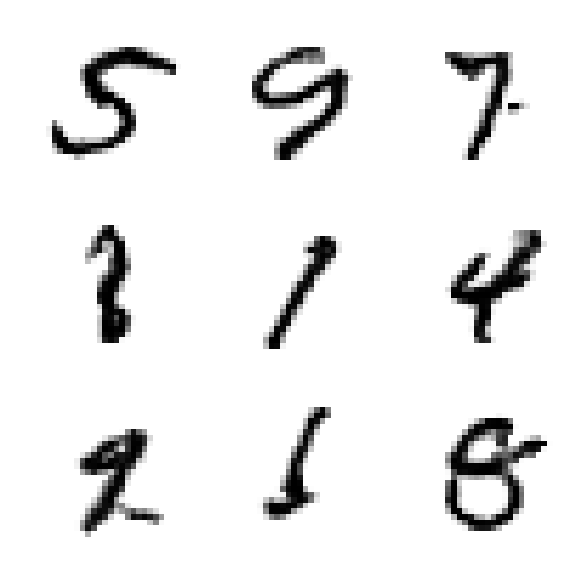 5 9 7
8 1 4
9 1 8